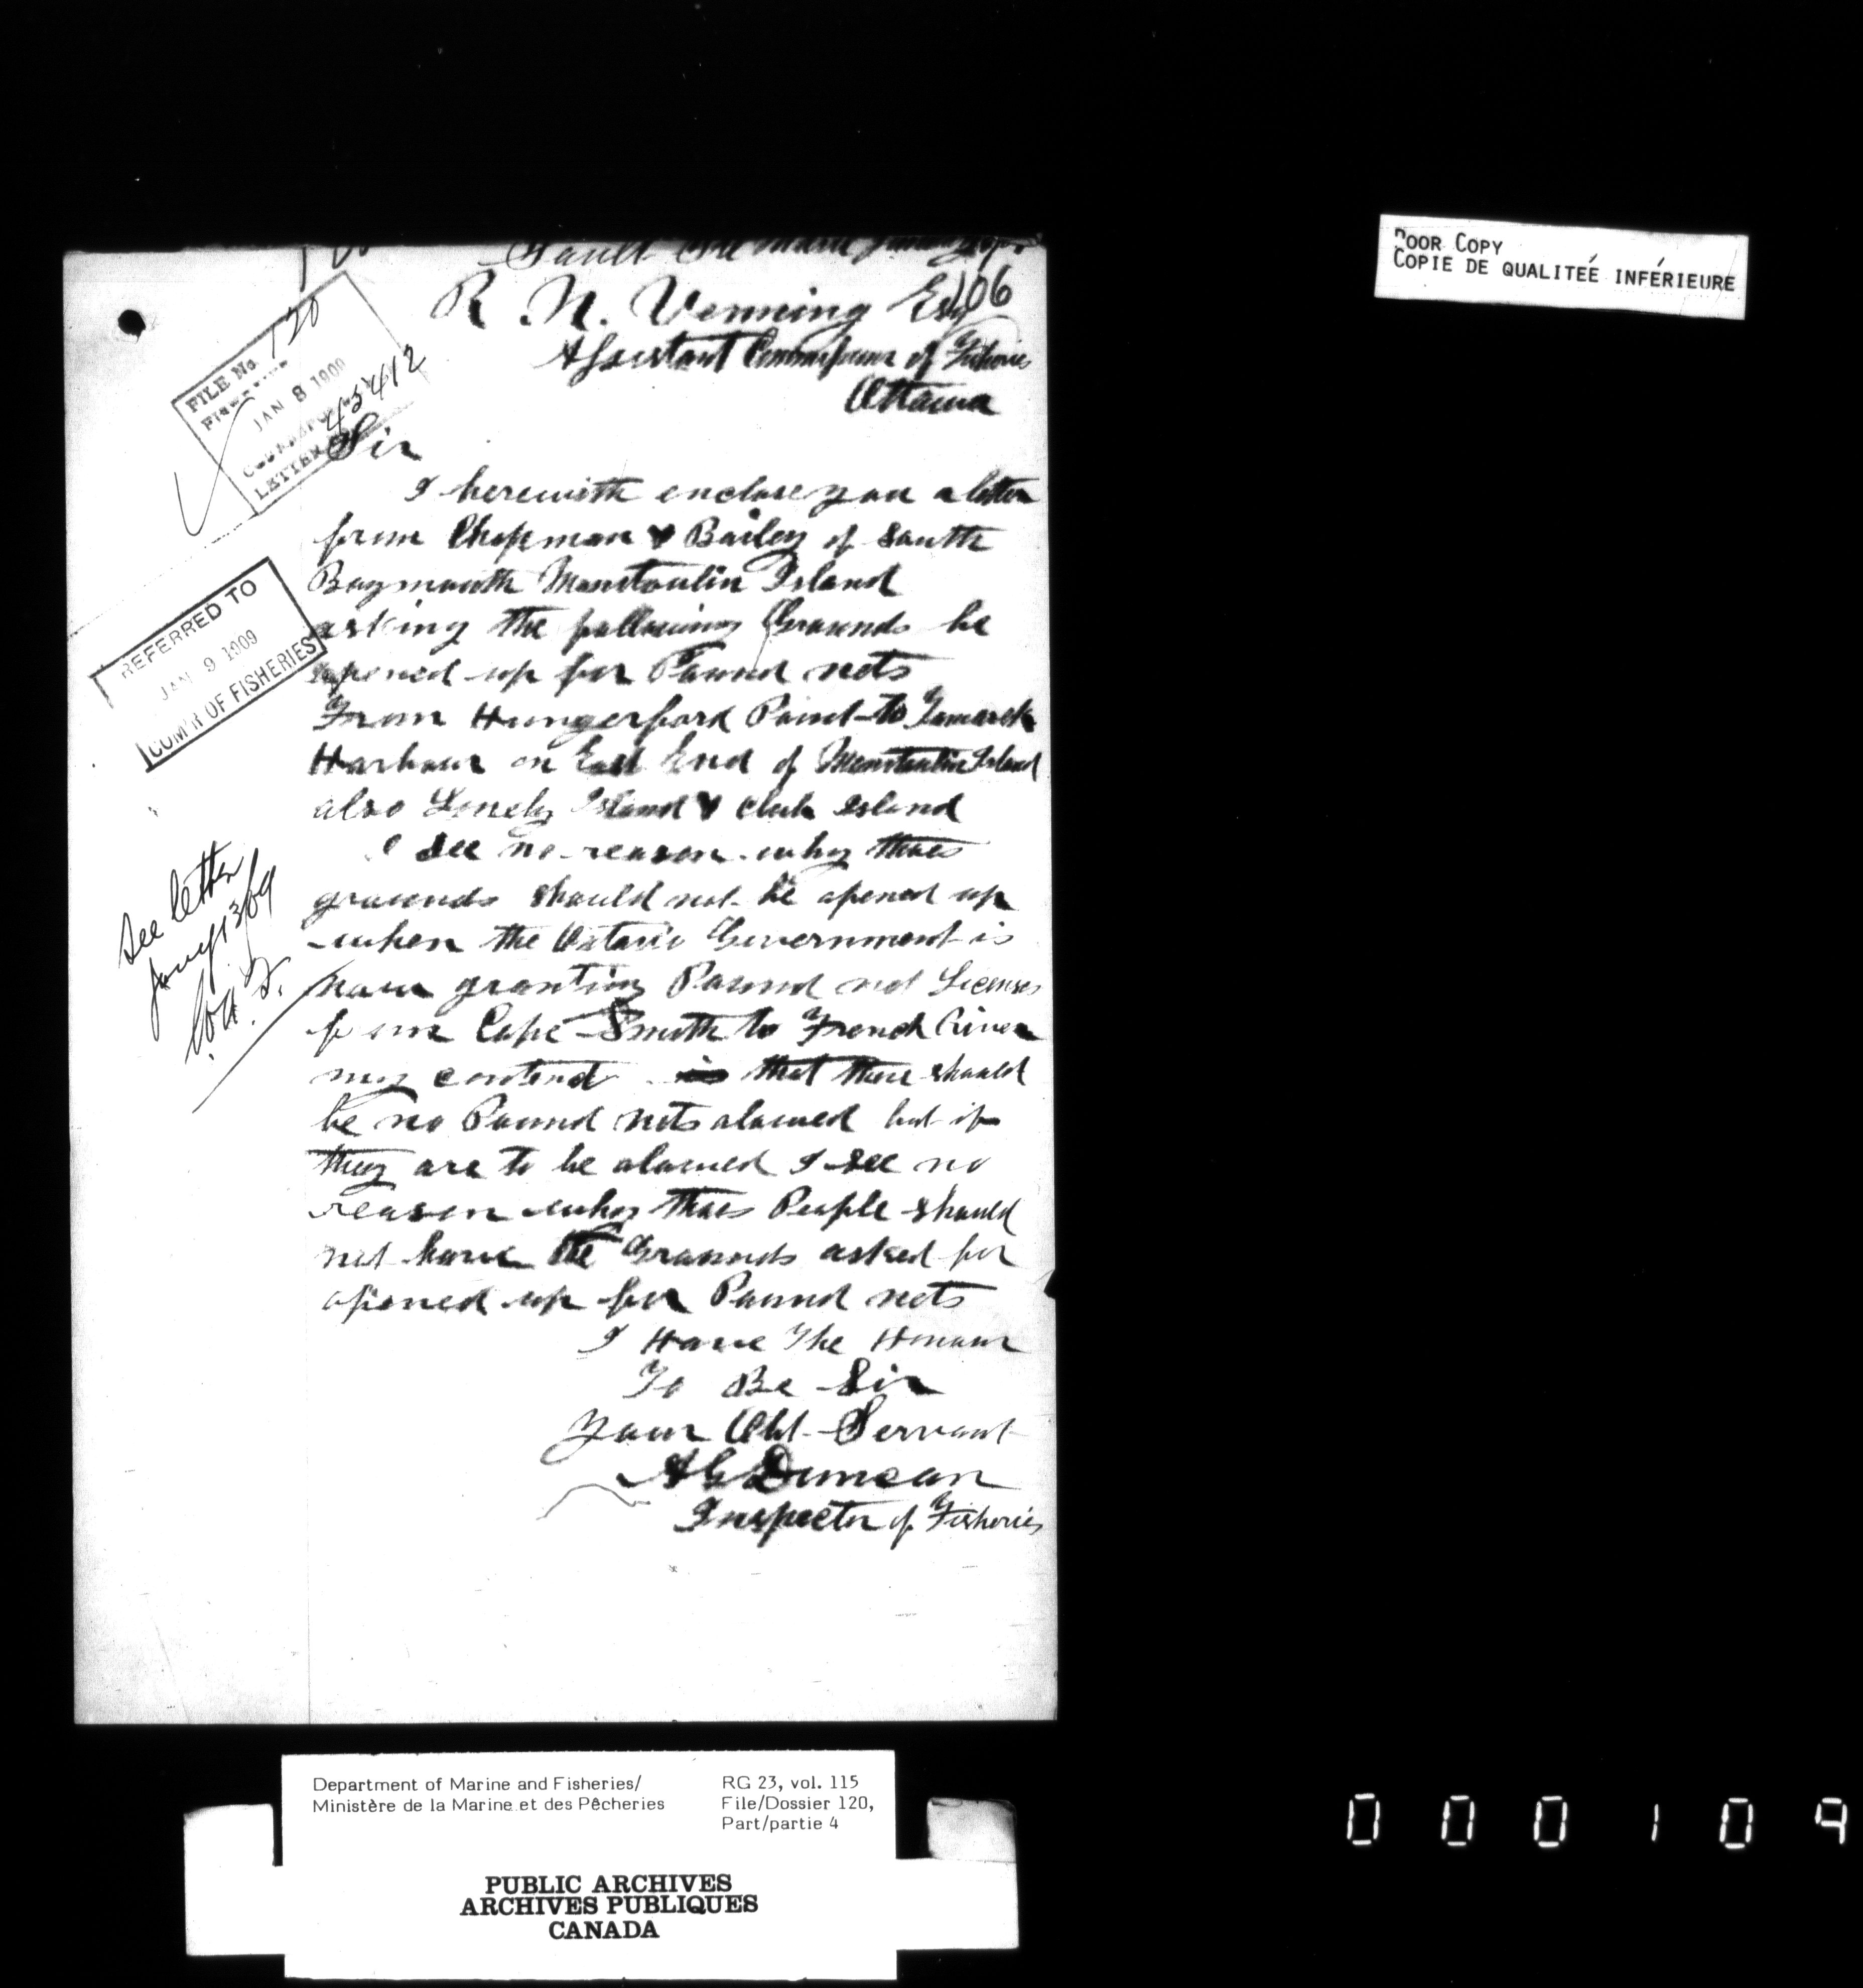 POOR COPY
COPIE DE QUALITEÉ INFÉRIEURE
Sault Ste Marie
106
R. N. Venning Esq
Assistant Commissioner of Fisheries
Ottawa
FILE No. 120
JAN 8 1909
45412
LETTER
Sir
I herewith enclose you a letter
from Chapman & Bailey of South
Baymouth Manitoulin Island
asking the following Grounds be
opened up for Pound nets
From Hungerford Point to Tamarck
Harbour on East End of Manitoulin Island
also Lonely Island & Club Island
I see no reason why thoes
grounds should not be opened up
when the Ontario Government is
now granting Pound net Licenses
from Cape Smith to French River
my contend that there should
be no Pound nets alowed but if
they are to be alowed I see no
reason why thoes People should
not have the Grounds asked for
opened up for Pound nets
I Have The Honour
To Be Sir
Your Obt Servant
A G Duncan
Inspector of Fisheries
REFERRED TO
JAN 9 1909
COM'R OF FISHERIES
See letter
Jany 13/09
Department of Marine and Fisheries/
Ministère de la Marine et des Pêcheries
RG 23, vol. 115
File/Dossier 120,
Part/partie 4
PUBLIC ARCHIVES
ARCHIVES PUBLIQUES
CANADA
000109